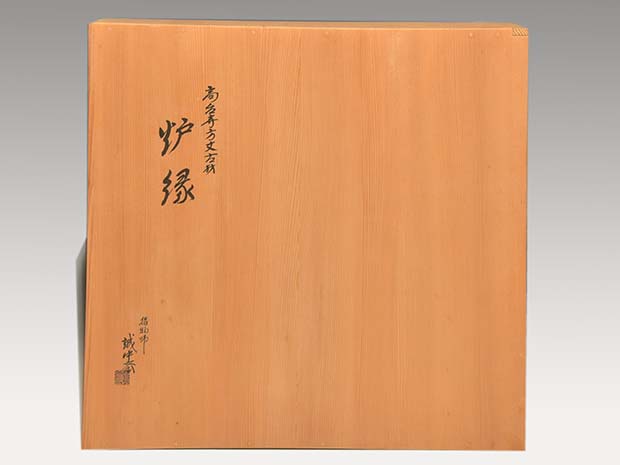 高台寺方丈古材
炉縁
指物師